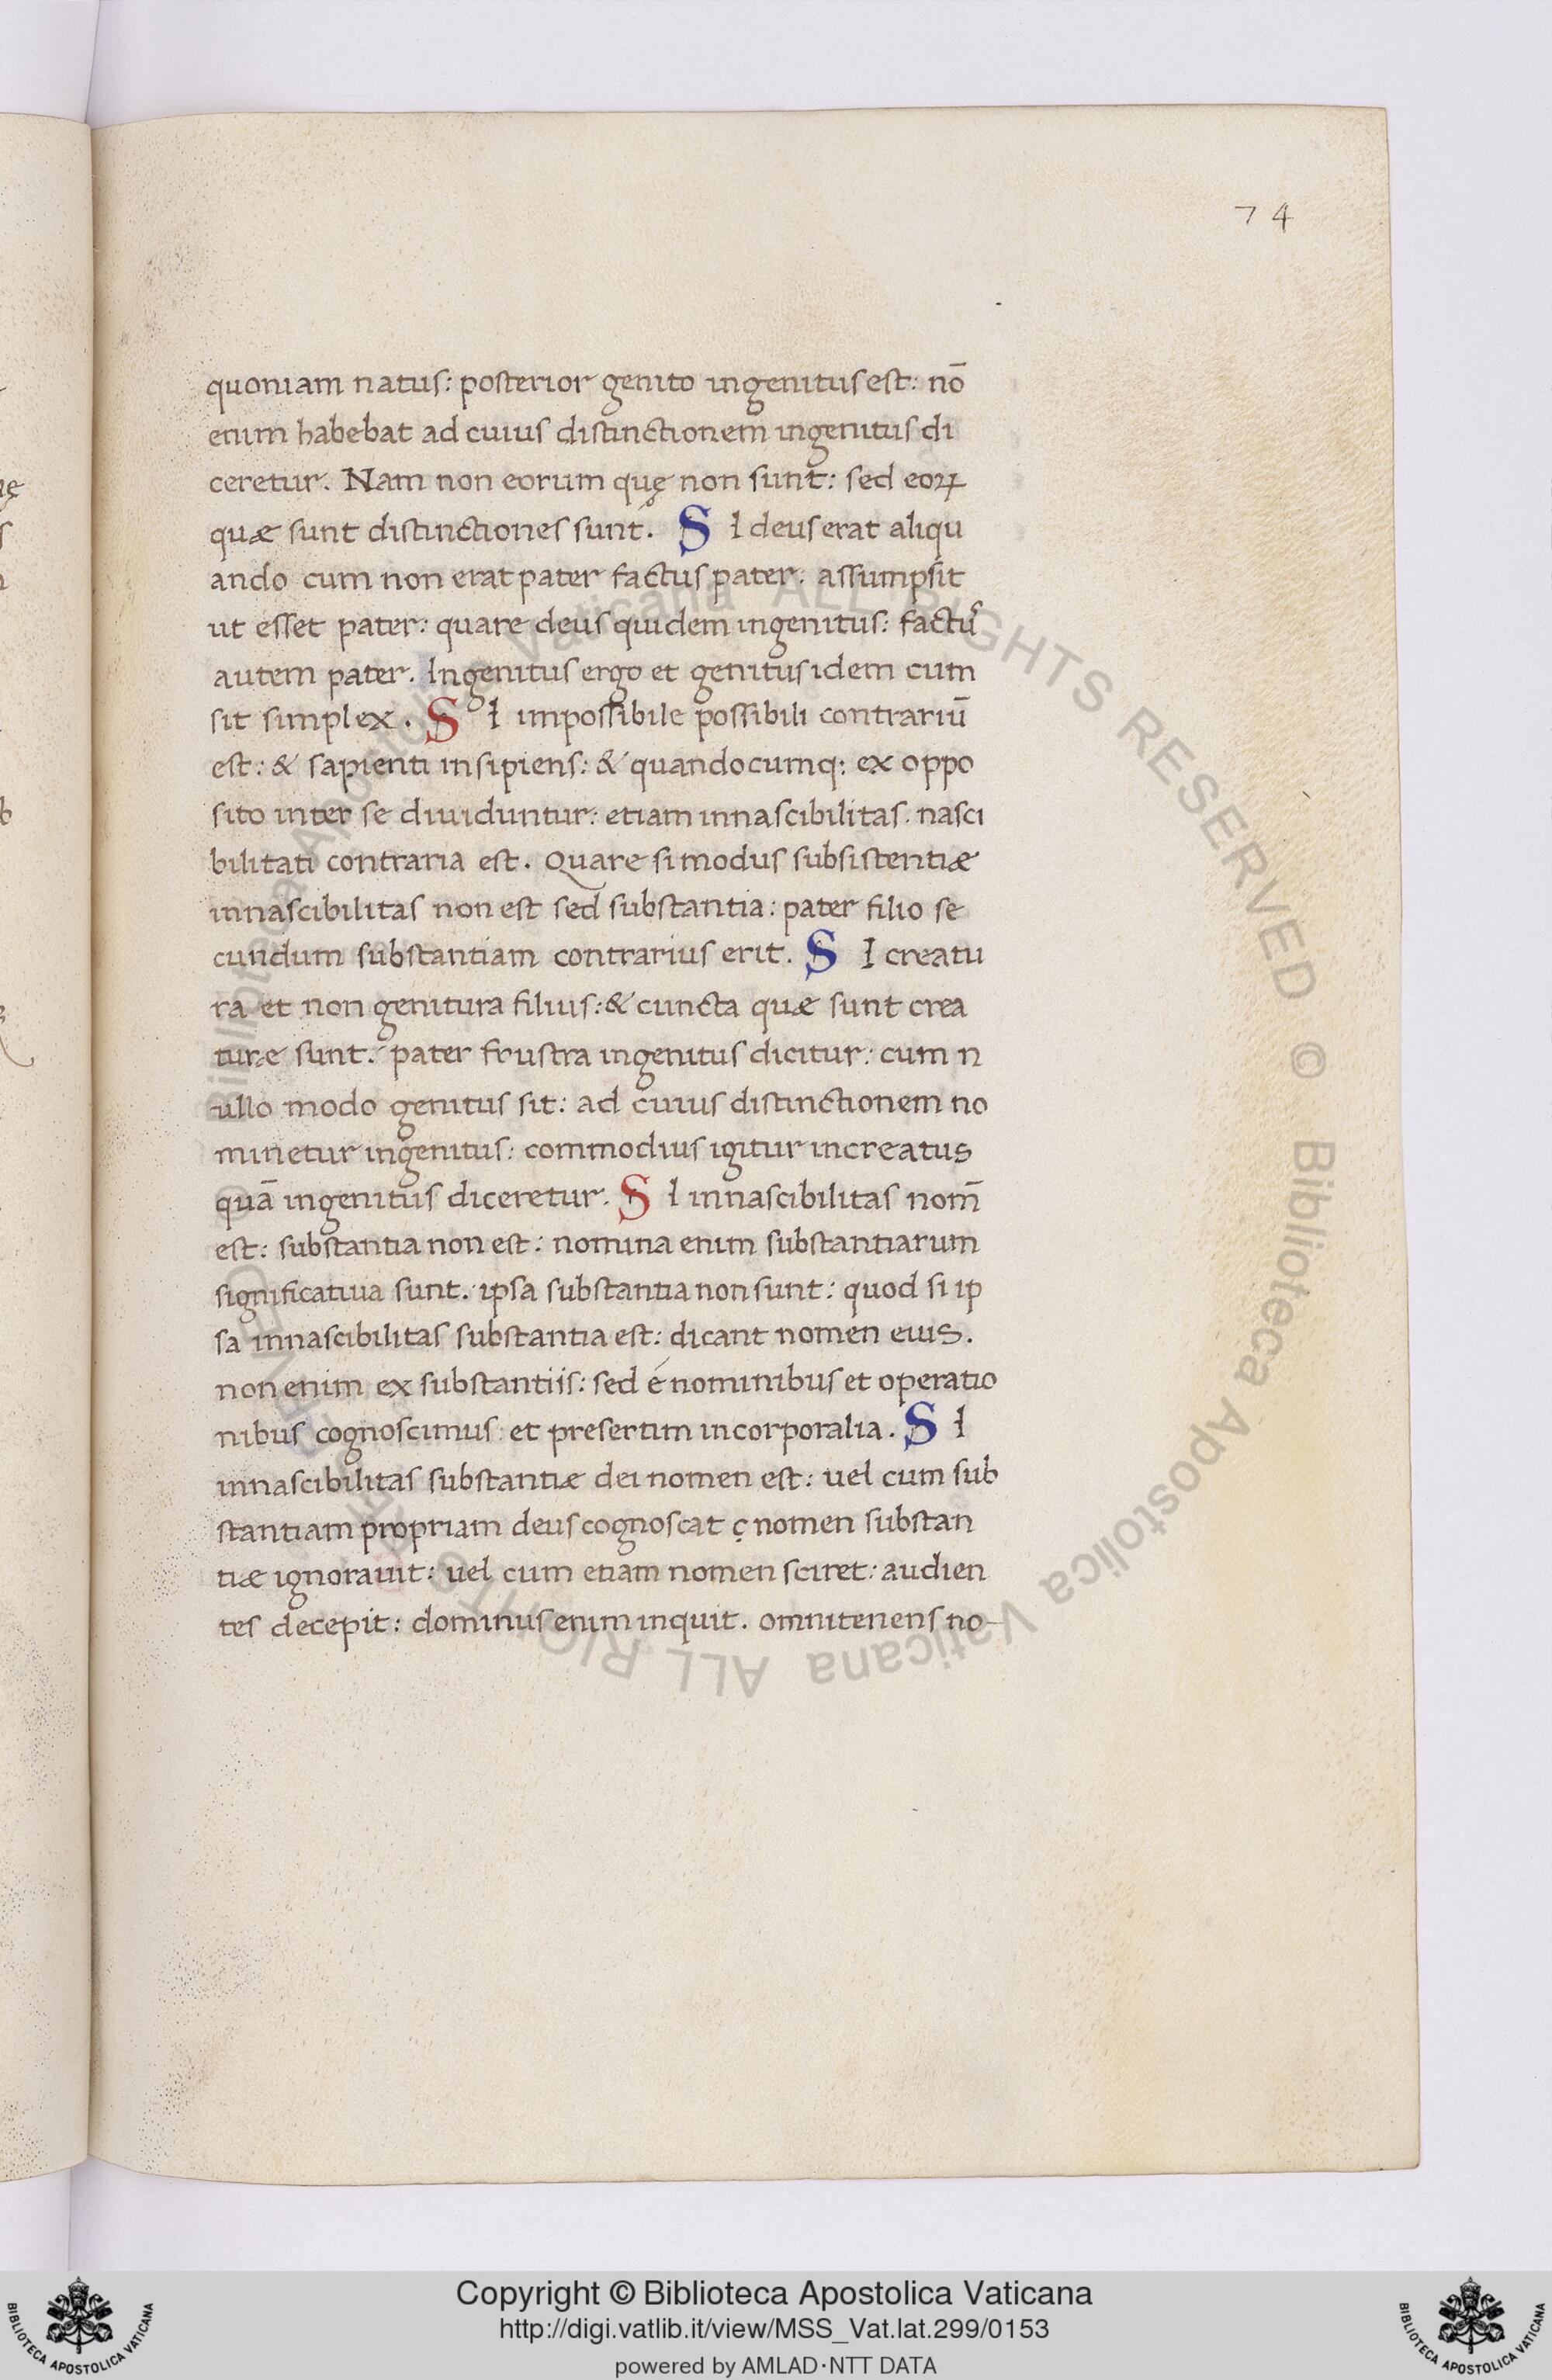 74
quoniam natus: posterior genito ingenitus est: nō
enim habebat ad cuius distinctionem ingenitus di
ceretur. Nam non eorum quę non sunt: sed eoꝝ
quæ sunt distinctiones sunt. SI deus erat aliqu
ando cum non erat pater factus pater: assumpsit
ut esset pater: quare deus quidem ingenitus: factus
autem pater. Ingenitus ergo et genitus idem cum
sit simplex. SI impossibile possibili contrariū
est: & sapienti insipiens: & quandocumq: ex oppo
sito inter se diuiduntur: etiam innascibilitas. nasci
bilitati contraria est. Quare si modus subsistentiæ
innascibilitas non est sed substantia: pater filio se
cundum substantiam contrarius erit. SI creatu
ra et non genitura filius: & cuncta quæ sunt crea
turæ sunt. pater frustra ingenitus dicitur: cum n
ullo modo genitus sit: ad cuius distinctionem no
minetur ingenitus: commodius igitur increatus
quā ingenitus diceretur. SI innascibilitas nom̄
est: substantia non est: nomina enim substantiarum
significatiua sunt. ipsa substantia non sunt: quod si ip
sa innascibilitas substantia est: dicant nomen eius.
non enim ex substantiis: sed é nominibus et operatio
nibus cognoscimus: et presertim incorporalia. SI
innascibilitas substantiæ dei nomen est: uel cum sub
stantiam propriam deus cognoscat ę nomen substan
tiæ ignorauit: uel cum etiam nomen sciret: audien
tes decepit: dominus enim inquit. omnitenens no-
© Biblioteca Apostolica Vaticana ALL RIGHTS RESERVED © Biblioteca Apostolica Vaticana ALL RIGHTS RESERVED
BIBLIOTECA APOSTOLICA VATICANA
Copyright © Biblioteca Apostolica Vaticana
http://digi.vatlib.it/view/MSS_Vat.lat.299/0153
powered by AMLAD·NTT DATA
BIBLIOTECA APOSTOLICA VATICANA